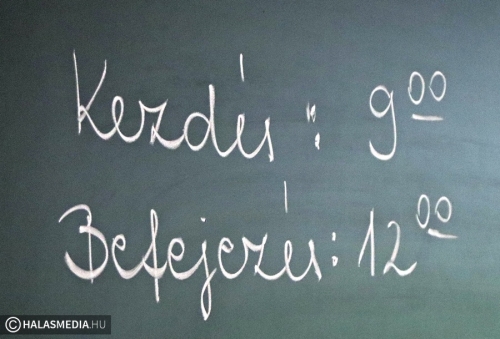 Kezdés: 9 00
Befejezés: 12 00
© HALASMEDIA.HU